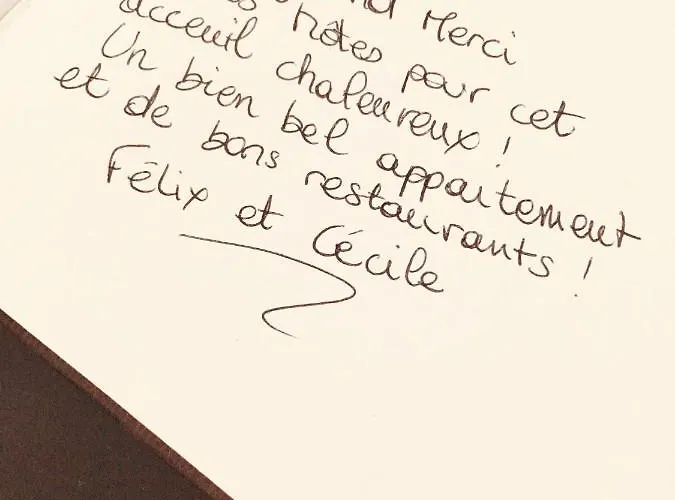 Merci
hôtes pour cet
acceuil chaleureux !
Un bien bel appartement
et de bons restaurants !
Félix et Cécile